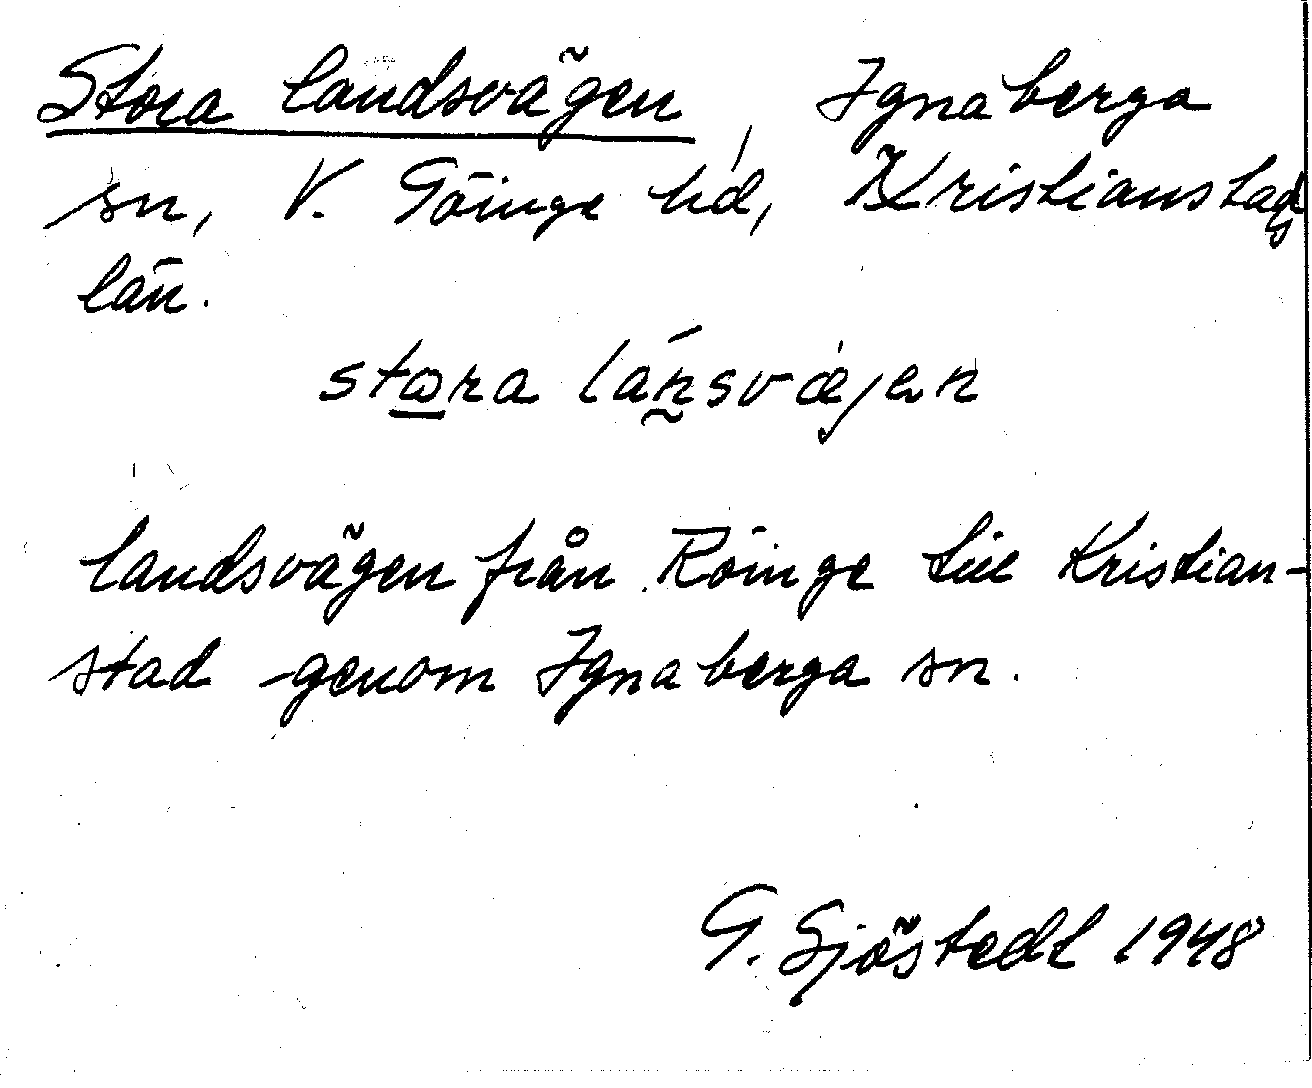 Stora landsvägen, Ignaberga
sn, V. Göinge hd, Kristianstads
län.
stora lánsvæjen
landsvägen från Röinge till Kristian-
stad genom Ignaberga sn.
G. Sjöstedt 1948